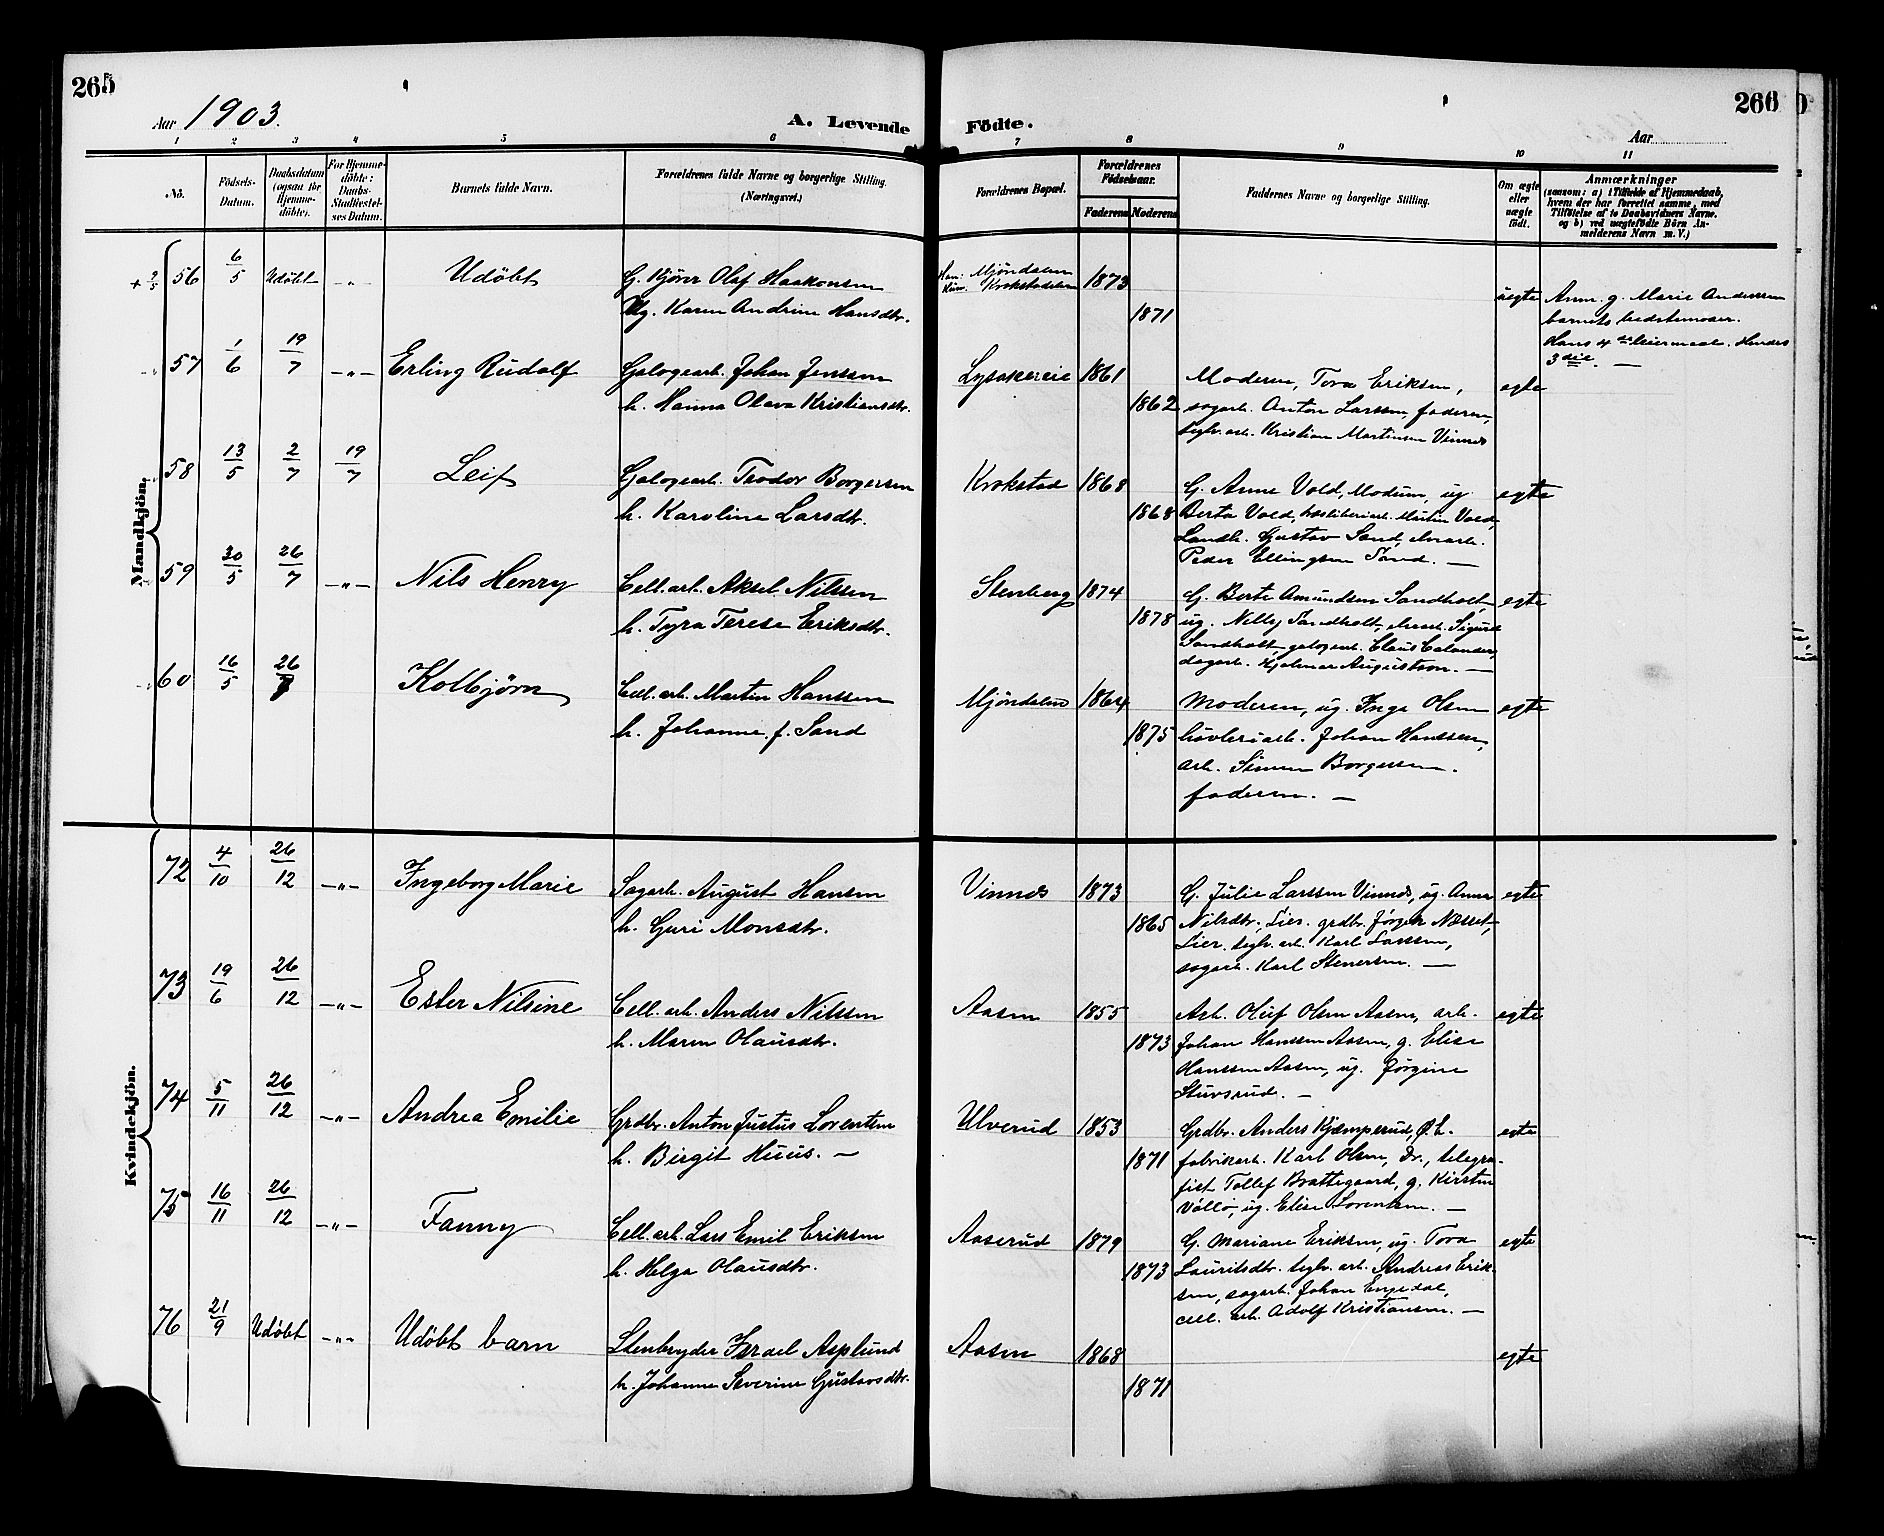 265
266
Aar 1903.
A. Levende
Födte.
Aar
1 2 3 4 5 6 7 8 9 10 11
No.
Födsels-Datum.
Daabsdatum (ogsaa for Hjemmedöbte).
For Hjemmedöbte: Daabs-Stadfæstelses Datum.
Barnets fulde Navn.
Forældrenes fulde Navne og borgerlige Stilling.
(Næringsvei.)
Forældrenes Bopæl.
Forældrenes Födselsaar.
Faderens Moderens
Faddernes Navne og borgerlige Stilling.
Om ægte eller uægte födt.
Anmærkninger
(saasom: a) i Tilfælde af Hjemmedaab, hvem der har forrettet samme, med Tilföielse af to Daabsvidners Navne, og b) ved uægtefödte Börn Anmelderens Navn m. V.)
Mandkjön.
+ 7/5 56 6/5 Udöbt -"- Udöbt
G. Kjører Olaf Haakonsen
Ug. Karen Andrine Hansdtr.
Han: Mjöndalen
Kun: Krokstadelven
1873
1871
uegte
Anm. g. Marie Anderssen
barnets bedstemoder.
Hans 4de leiermaal. Hendes
3die. —
57 1/6 19/7 -"- Erling Rudolf
Galogearb. Johan Jenssen
h. Hanna Olava Kristiansdtr.
Lysakereie 1861
1862
Moderen, Tora Eriksen,
sagarb. Anton Larssen, faderen,
teglv. arb. Kristian Martinsen Vinnes
egte
58 13/5 2/7 19/7 Leif
Galogearb. Teodor Borgersen
h. Karoline Larsdtr.
Krokstad 1868
1868
G. Anne Vold, Modum, ug.
Berta Vold, træsliberiarb. Martin Vold,
Landh. Gustav Sand,
Peder Ellingsen Sand. —
egte
59 30/5 26/7 -"- Nils Henry
Cell. arb. Aksel Nilssen
h. Tyra Terese Eriksdtr.
Stenberg 1874
1878
G. Berte Amundsen Sandholt,
ug. Nelly Sandholt, Sigurd
Sandholt, galogearb. Claus Calander,
dagarb. Hjalmar Augustson. —
egte
60 16/5 26/7 Kolbjørn
Cell. arb. Martin Hanssen
h. Johanne f. Sand
Mjöndalen 1864
1875
Moderen, ug. Inga Olsen
høvleriarb. Johan Hanssen,
arb. Simen Borgersen.
faderen. —
egte
Kvindekjön.
72 4/10 26/12 -"- Ingeborg Marie
Sagarb. August Hansen
h. Guri Monsdtr.
Vinnes 1873
1865
G. Julie Larssen Vinnes, ug. Anna
Nilsdtr., Lier. grdbr. Jørgen Næsset,
Lier. teglv. arb. Karl Larssen,
sagarb. Karl Stenersen. —
egte
73 19/6 26/12 -"- Ester Nilsine
Cell. arb. Anders Nilssen
h. Maren Olausdtr.
Aasen 1855
1873
Arb. Oluf Olsen Aasen, arb.
Johan Hanssen Aasen, g. Elise
Hanssen Aasen, ug. Jørgine
Stuvsrud. —
egte
74 5/11 26/12 -"- Andrea Emilie
Grdbr. Anton Justus Lorentzen
h. Birgit Huus. —
Ulverud 1853
1871
Grdbr. Anders Kjæmperud, Ø.E.
fabrikarb. Karl Olsen, Dr., telegra-
fist Tollef Brattegaard, g. Kirsten
Völlö, ug. Elise Lorentzen. —
egte
75 16/11 26/12 -"- Fanny
Cell. arb. Lars Emil Eriksen
h. Helga Olausdtr.
Aaserud 1879
1873
G. Mariane Eriksen, ug. Tora
Lauritsdtr. teglv. arb. Andreas Erik-
sen, sagarb. Johan Engedal,
cell. arb. Adolf Kristiansen. —
egte
76 21/9 Udöbt -"- Udöbt barn
Stenbryder Israel Asplund
h. Johanne Severine Gustavsdtr.
Aasen 1868
1871
egte